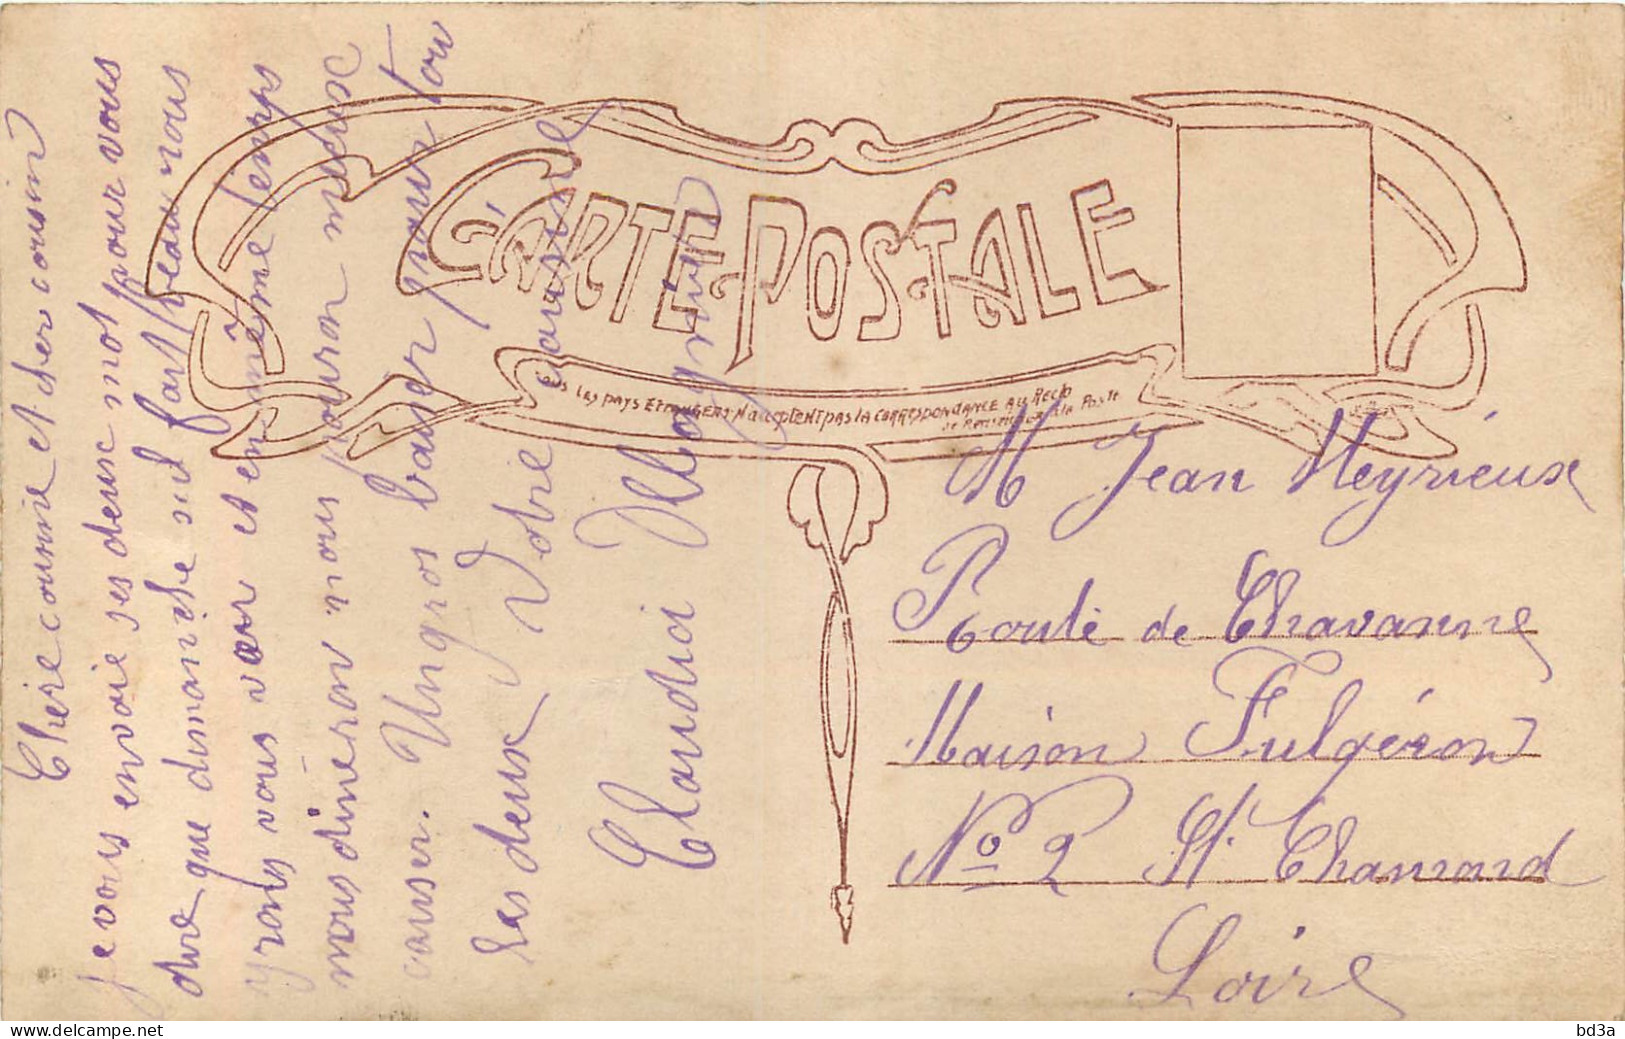 CARTE POSTALE
Tous Les pays Etrangers N'acceptent pas la correspondance au Recto
se Renseigner à la Poste
Chère cousine et cher cousin
je vous envoie ses deux mot pour vous
dire que dimanche sil fait beau nous
yrons vous voir et en même temps
nous dineron nous pouron mieux
causer. Un gros baiser pour tou
les deux Votre cousine
Claudia Meyrieux
M Jean Meyrieux
Route de Chavanne
Maison Fulgéron
No 2 St. Chamond
Loire
www.delcampe.net
bd3a